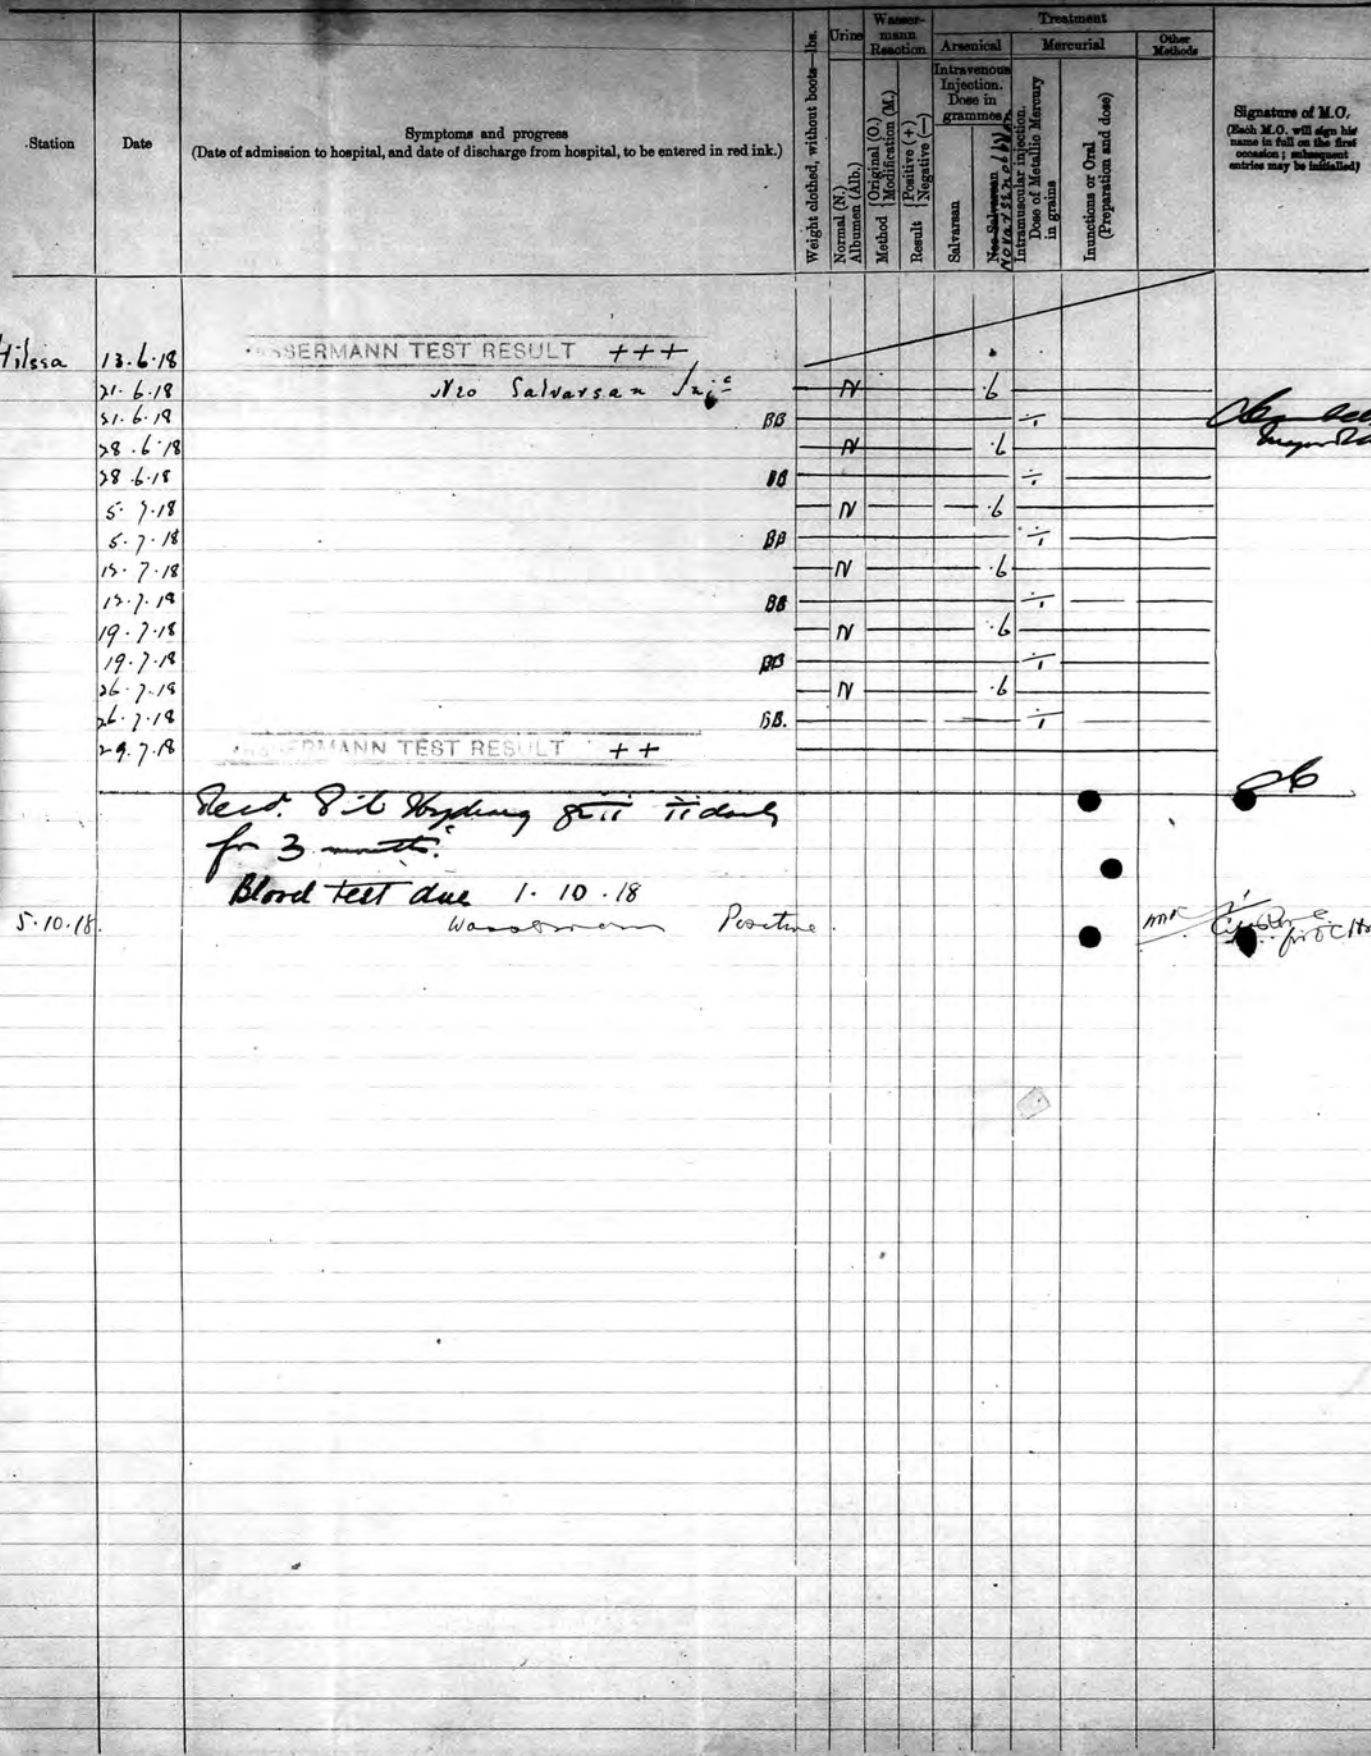 Station
Date
Symptoms and progress
(Date of admission to hospital, and date of discharge from hospital, to be entered in red ink.)
Weight clothed, without boots—lbs.
Urine
Normal (N.)
Albumen (Alb.)
Wasser-
mann
Reaction
Method {Original (O.)
Modification (M.)
Result {Positive (+)
Negative (—)
Treatment
Arsenical
Intravenous
Injection.
Dose in
grammes
Salvarsan
Neo-Salvarsan
Novarsenobenzol
Mercurial
Intramuscular injection.
Dose of Metallic Mercury
in grains
Inunctions or Oral
(Preparation and dose)
Other
Methods
Signature of M.O.
(Each M.O. will sign his
name in full on the first
occasion; subsequent
entries may be initialled)
13.6.18 WASSERMANN TEST RESULT +++
21.6.18 Neo Salvarsan Injc N .6
21.6.18 BB ÷
28.6.18 N .6
28.6.18 BB ÷
5.7.18 N .6
5.7.18 BB ÷
12.7.18 N .6
12.7.18 BB ÷
19.7.18 N .6
19.7.18 BB ÷
26.7.18 N .6
26.7.18 BB. ÷
29.7.18 WASSERMANN TEST RESULT ++
Pil Hydrarg gr ii ii daily
for 3 months.
Blood test due 1.10.18
5.10.18. Wassermann Positive.